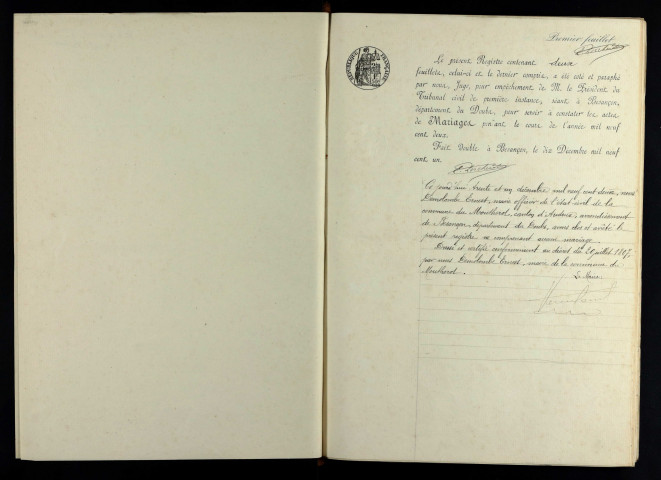 Premier feuillet
RÉPUBLIQUE FRANÇAISE
Le présent Registre contenant deux
feuillets, celui-ci et le dernier compris, a été coté et paraphé
par nous, Juge, pour empêchement de M. le Président du
Tribunal civil de première instance, séant à Besançon,
département du Doubs, pour servir à constater les actes
de Mariages pendant le cours de l'année mil neuf
cent deux.
Fait double à Besançon, le dix Décembre mil neuf
cent un.
Ce jourd'hui trente et un décembre mil neuf cent deux, nous
Ernest, maire officier de l'état civil de la
commune de Montherot, canton d'Audeux, arrondissement
de Besançon, département du Doubs, avons clos et arrêté le
présent registre ne comprenant aucun mariage.
Dressé et certifié conformément au décret du 20 juillet 1807,
par nous Ernest, maire de la commune de
Montherot.
Le Maire